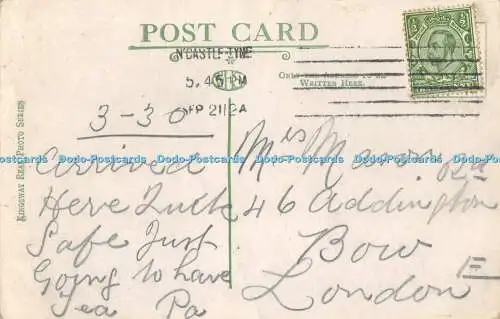 POST CARD
N'CASTLE-TYNE
5.45 PM
SP 21 12A
ONLY THE ADDRESS TO BE
WRITTEN HERE.
KINGSWAY REAL PHOTO SERIES
3-30
Arrived
Here Quite
Safe Just
Going to have
Tea Pa
Mrs Mason
46 Addington Rd
Bow
London E
Dodo-Postcards Dodo-Postcards Dodo-Postcards Dodo-Postcards Dodo-Postcards Dodo-Postcards